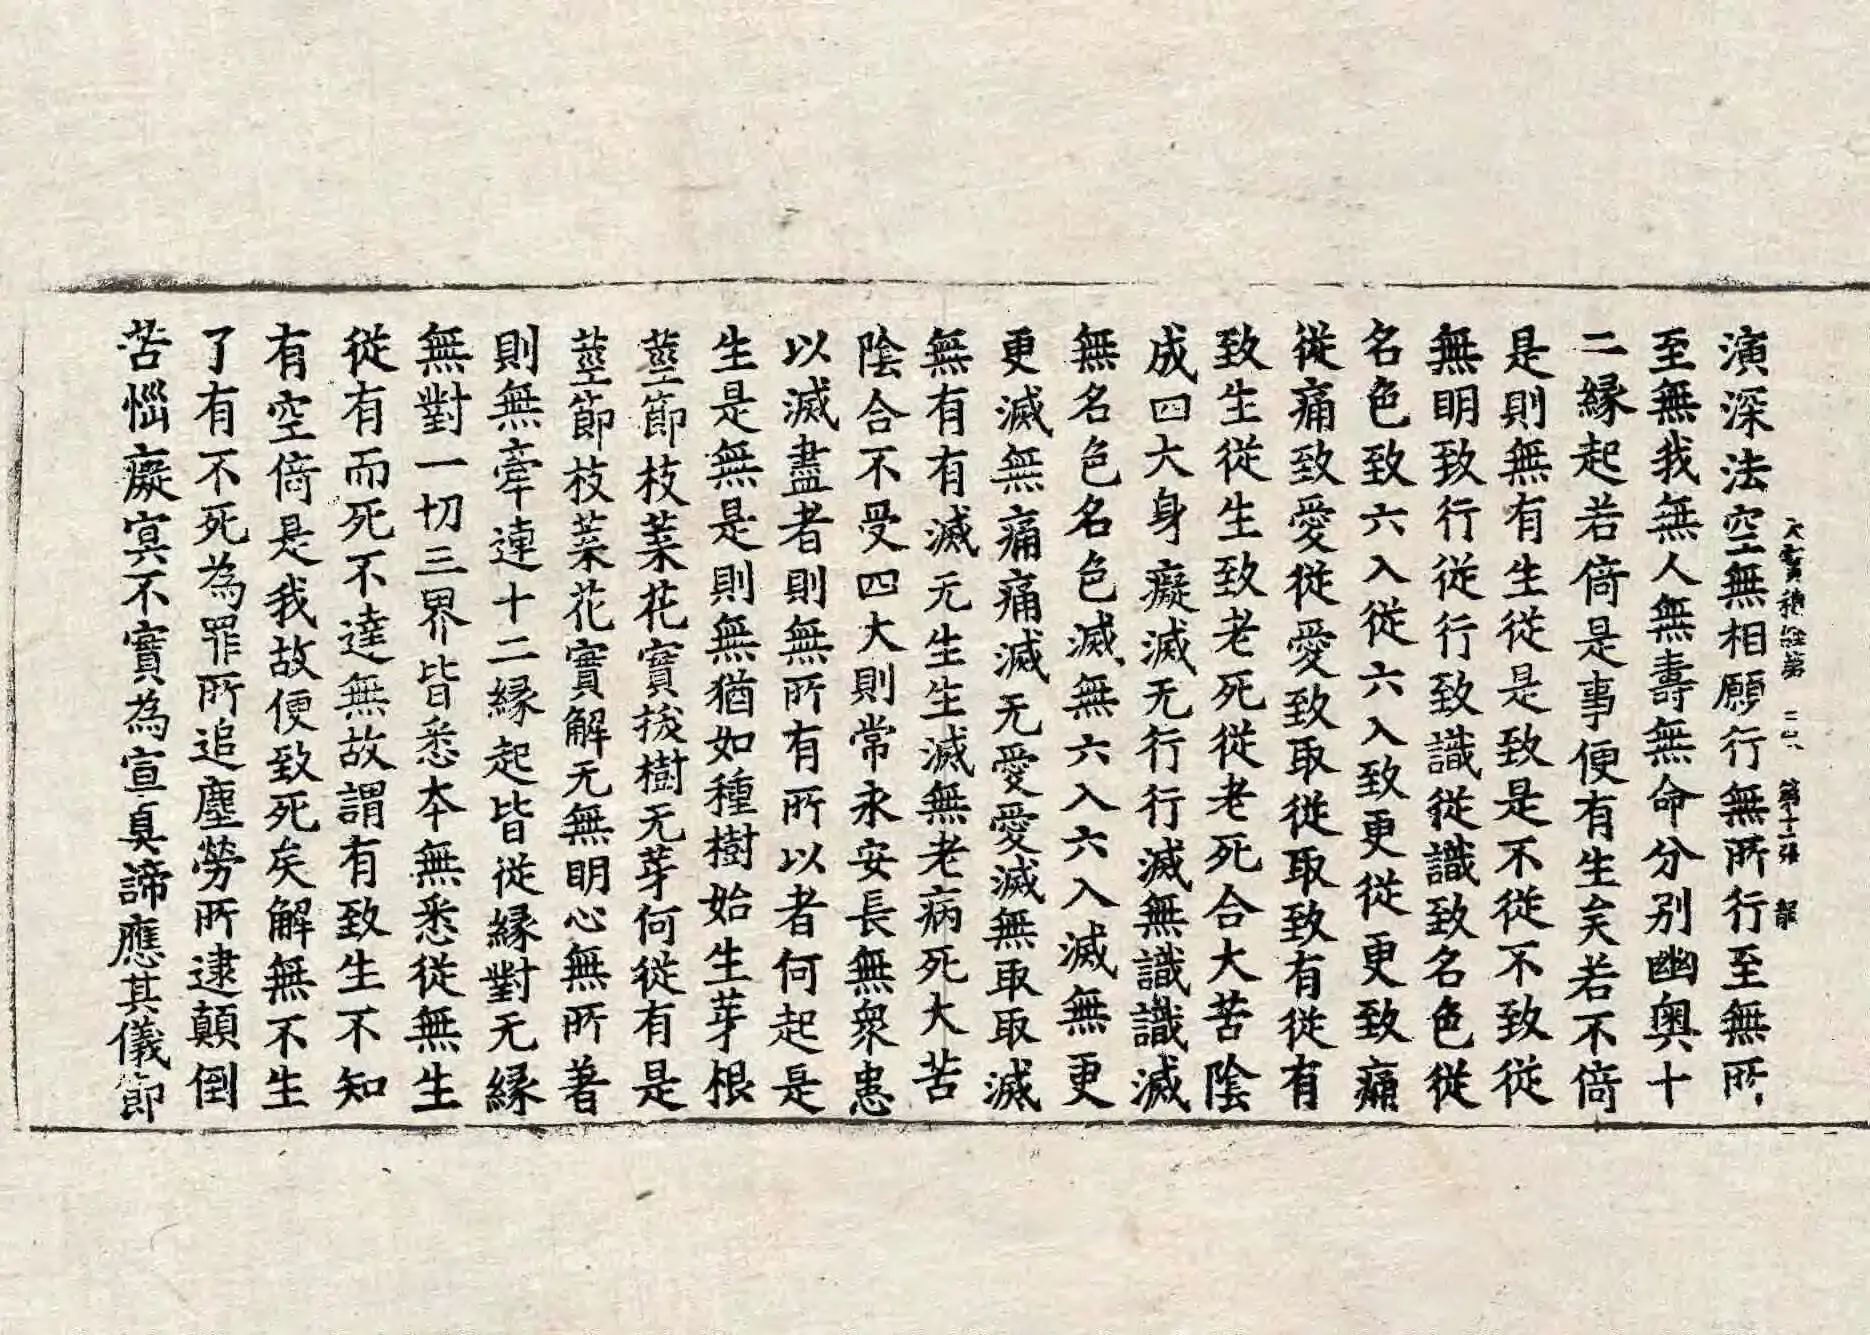 大寳積經第 第十二張 龍
演深法空無相願行無所行至無所
至無我無人無壽無命分别幽奥十
二縁起若倚是事便有生矣若不倚
是則無有生從是致是不從不致從
無明致行從行致識從識致名色從
名色致六入從六入致更從更致痛
從痛致愛從愛致取從取致有從有
致生從生致老死從老死合大苦陰
成四大身癡滅无行行滅無識識滅
無名色名色滅無六入六入滅無更
更滅無痛痛滅无愛愛滅無取取滅
無有有滅无生生滅無老病死大苦
陰合不受四大則常永安長無衆患
以滅盡者則無所有所以者何起是
生是無是則無猶如種樹始生芽根
莖節枝葉花實拔樹无芽何從有是
莖節枝葉花實解无無明心無所著
則無牽連十二縁起皆從縁對无縁
無對一切三界皆悉本無悉從無生
從有而死不達無故謂有致生不知
有空倚是我故便致死矣解無不生
了有不死為罪所追塵勞所逮顛倒
苦惱癡冥不實為宣真諦應其儀節